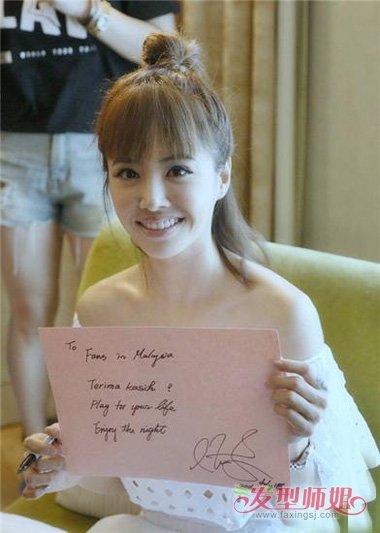 WORLD TOUR
To
Fans in Malaysia
Terima kasih ?
Play for your life
Enjoy the night
发型师姐
www.faxingsj.com